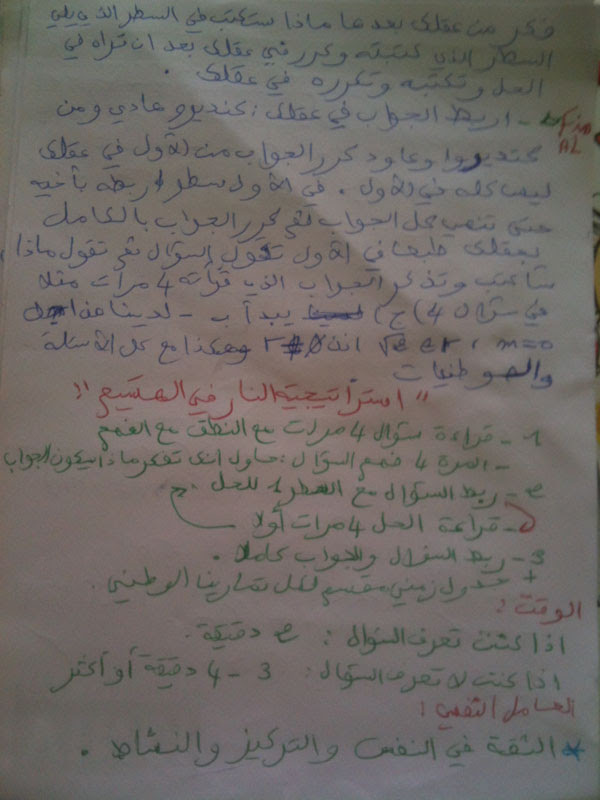 فكر من عقلك بعدها ماذا ستكتب في السطر الذي يلي
السطر الذي كتبته وكرر في عقلك بعد ان تراه في
الحل وتكتبه وتكرره في عقلك .
- اربط الجواب في عقلك : كنديرو عادي ومن
Fin AL
كنديروا وعاود كرر الجواب من الأول في عقلك
ليس كله في الأول . في الأول سطر اربطه بأخيه
حتى تنهي كل الجواب ثم كرر الجواب بالكامل
بعقلك طبعا في الأول تقول السؤال ثم تقول ماذا
سأكتب وتذكر الجواب الذي قرأته 4 مرات مثلا
في سؤال 4) ج) يبدأ ب - لدينا
m=0 اذن وهكذا مع كل الأسئلة
والوطنيات
"استراتيجية النار في الهشيم"
1 - قراءة سؤال 4 مرات مع النطق مع الفهم
- المرة 4 فهم السؤال : حاول انك تفكر ماذا سيكون الجواب
2 - ربط السؤال مع السطر 1 للحل
- قراءة الحل 4 مرات أولا
3 - ربط السؤال والجواب كاملا .
+ جدول زمني مقسم لكل تمارين الوطني .
الوقت :
اذا كنت تعرف السؤال : 2 دقيقة .
اذا كنت لا تعرف السؤال : 3 - 4 دقيقة أو أكثر
العامل النفسي :
* الثقة في النفس والتركيز والنشاط .